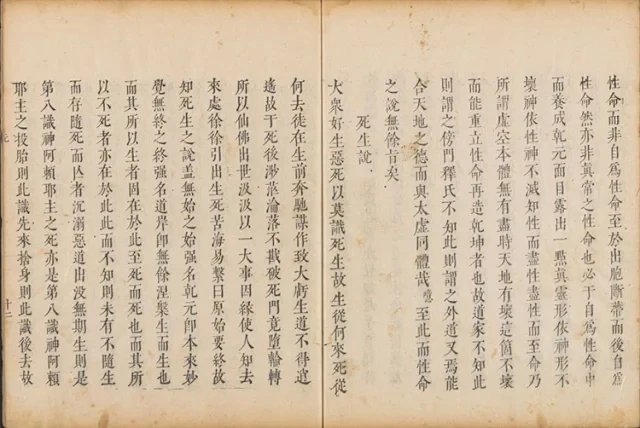 性命而非自爲性命也必于自爲性命中
性命然亦非真常之性命也必于自爲性命中
而養成乾元面目露出一點真靈形依神形不
壞神依性神不滅知性而盡性盡性而至命乃
所謂虛空本體無有盡時天地有壞這箇不壞
而能重立性命再造乾坤者也故道家不知此
則謂之傍門釋氏不知此則謂之外道又焉能
合天地之德而與太虛同體哉 至此而性命
之說無餘旨矣
死生說
大衆好生惡死以莫識死生故生從何來死從
何去徒在生前奔馳謀作致大虧生道不得逍
遙故于死後渺茫淪落不戡破死門竟墮輪轉
所以仙佛出世汲汲以一大事因緣使人知去
來處徐徐引出生死苦海易繫曰原始要終故
知死生之說盖無始之始强名乾元卽本來妙
覺無終之終强名道岸卽無餘湼槃生而生也
而其所以生者固在於此至死而死也其所
以不死者亦在於此此而不知則未有不隨生
而存隨死而亾者沉溺惡道出没無期生則是
第八識神阿賴耶主之死亦是第八識神阿賴
耶主之投胎則此識先來捨身則此識後去故
十二